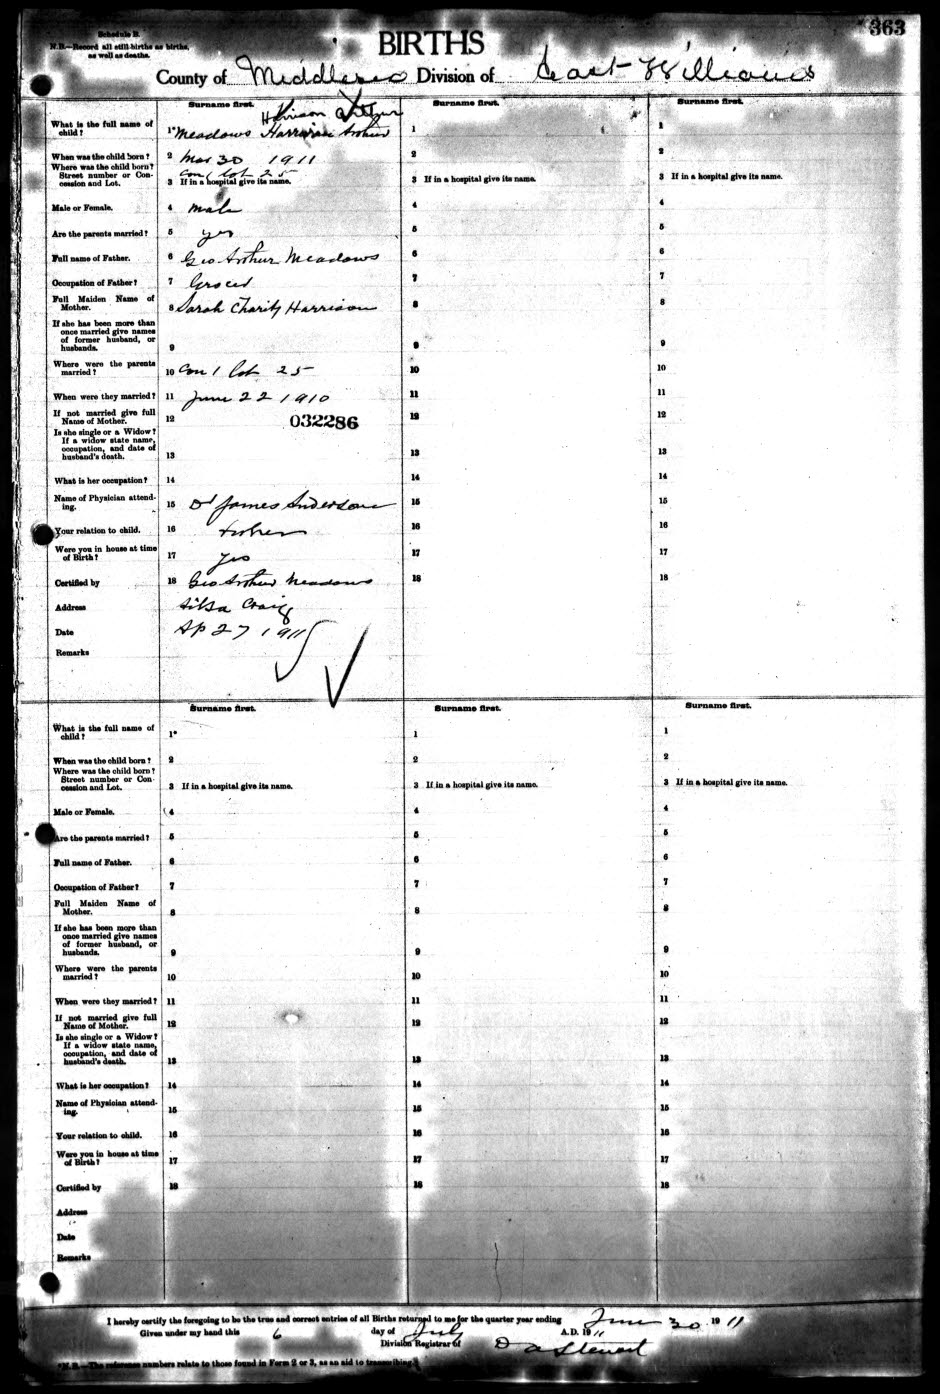 363
Schedule B.
N.B.—Record all still-births as births, as well as deaths.
BIRTHS
County of Middlesex Division of East Williams
Surname first.
Surname first.
Surname first.
Harrison Arthur
What is the full name of child? 1* Meadows Harrison Arthur 1 1
When was the child born? 2 Mar 30 1911 2 2
Where was the child born? Street number or Concession and Lot. Con 1 lot 25
3 If in a hospital give its name. 3 If in a hospital give its name. 3 If in a hospital give its name.
Male or Female. 4 male 4 4
Are the parents married? 5 yes 5 5
Full name of Father. 6 Geo Arthur Meadows 6 6
Occupation of Father? 7 Grocer 7 7
Full Maiden Name of Mother. 8 Sarah Charity Harrison 8 8
If she has been more than once married give names of former husband, or husbands. 9 9 9
Where were the parents married? 10 Con 1 lot 25 10 10
When were they married? 11 June 22 1910 11 11
If not married give full Name of Mother. 12 032286 12 12
Is she single or a Widow? If a widow state name, occupation, and date of husband's death. 13 13 13
What is her occupation? 14 14 14
Name of Physician attending. 15 Dr James Anderson 15 15
Your relation to child. 16 father 16 16
Were you in house at time of Birth? 17 yes 17 17
Certified by 18 Geo Arthur Meadows 18 18
Address Ailsa Craig
Date Ap 27 1911
Remarks
Surname first.
Surname first.
Surname first.
What is the full name of child? 1* 1 1
When was the child born? 2 2 2
Where was the child born? Street number or Concession and Lot. 3 If in a hospital give its name. 3 If in a hospital give its name. 3 If in a hospital give its name.
Male or Female. 4 4 4
Are the parents married? 5 5 5
Full name of Father. 6 6 6
Occupation of Father? 7 7 7
Full Maiden Name of Mother. 8 8 8
If she has been more than once married give names of former husband, or husbands. 9 9 9
Where were the parents married? 10 10 10
When were they married? 11 11 11
If not married give full Name of Mother. 12 12 12
Is she single or a Widow? If a widow state name, occupation, and date of husband's death. 13 13 13
What is her occupation? 14 14 14
Name of Physician attending. 15 15 15
Your relation to child. 16 16 16
Were you in house at time of Birth? 17 17 17
Certified by 18 18 18
Address
Date
Remarks
I hereby certify the foregoing to be the true and correct entries of all Births returned to me for the quarter year ending June 30 1911
Given under my hand this 6 day of July A.D. 1911
Division Registrar of D A Stewart
*N.B.—The reference numbers relate to those found in Form 2 or 3, as an aid to transcribing.